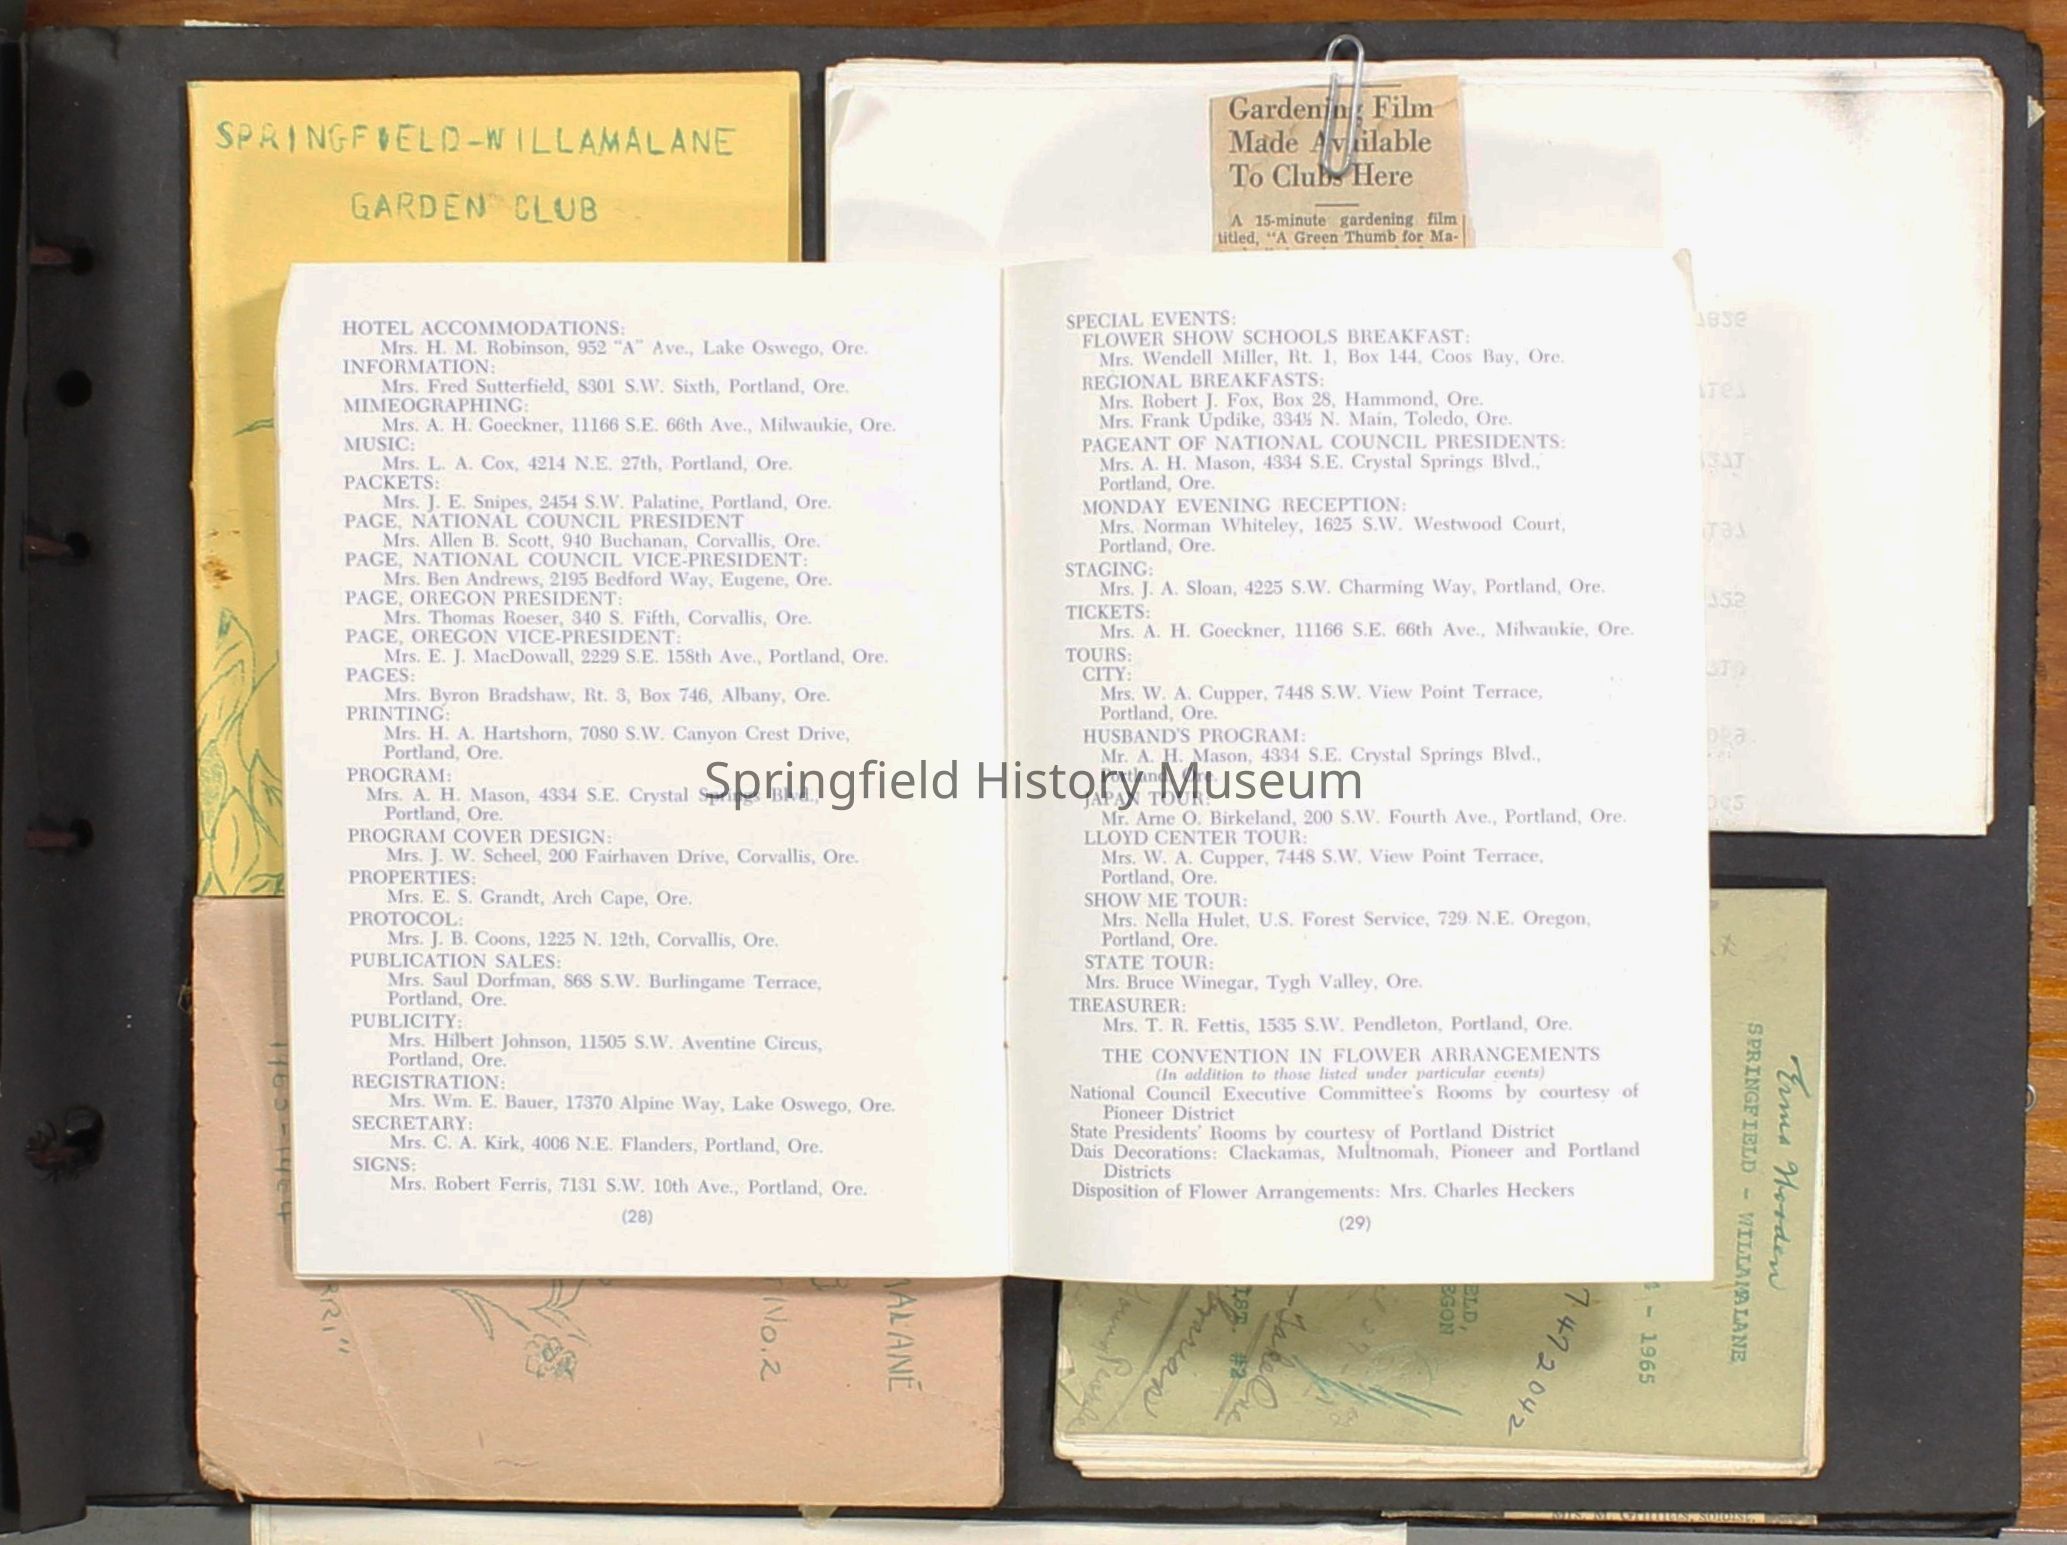 SPRINGFIELD-WILLAMALANE
GARDEN CLUB
Gardening Film
Made Available
To Clubs Here
A 15-minute gardening film
titled, "A Green Thumb for Ma-
HOTEL ACCOMMODATIONS:
Mrs. H. M. Robinson, 952 "A" Ave., Lake Oswego, Ore.
INFORMATION:
Mrs. Fred Sutterfield, 8301 S.W. Sixth, Portland, Ore.
MIMEOGRAPHING:
Mrs. A. H. Goeckner, 11166 S.E. 66th Ave., Milwaukie, Ore.
MUSIC:
Mrs. L. A. Cox, 4214 N.E. 27th, Portland, Ore.
PACKETS:
Mrs. J. E. Snipes, 2454 S.W. Palatine, Portland, Ore.
PAGE, NATIONAL COUNCIL PRESIDENT
Mrs. Allen B. Scott, 940 Buchanan, Corvallis, Ore.
PAGE, NATIONAL COUNCIL VICE-PRESIDENT:
Mrs. Ben Andrews, 2195 Bedford Way, Eugene, Ore.
PAGE, OREGON PRESIDENT:
Mrs. Thomas Roeser, 340 S. Fifth, Corvallis, Ore.
PAGE, OREGON VICE-PRESIDENT:
Mrs. E. J. MacDowall, 2229 S.E. 158th Ave., Portland, Ore.
PAGES:
Mrs. Byron Bradshaw, Rt. 3, Box 746, Albany, Ore.
PRINTING:
Mrs. H. A. Hartshorn, 7080 S.W. Canyon Crest Drive,
Portland, Ore.
PROGRAM:
Mrs. A. H. Mason, 4334 S.E. Crystal Springs Blvd.,
Portland, Ore.
PROGRAM COVER DESIGN:
Mrs. J. W. Scheel, 200 Fairhaven Drive, Corvallis, Ore.
PROPERTIES:
Mrs. E. S. Grandt, Arch Cape, Ore.
PROTOCOL:
Mrs. J. B. Coons, 1225 N. 12th, Corvallis, Ore.
PUBLICATION SALES:
Mrs. Saul Dorfman, 868 S.W. Burlingame Terrace,
Portland, Ore.
PUBLICITY:
Mrs. Hilbert Johnson, 11505 S.W. Aventine Circus,
Portland, Ore.
REGISTRATION:
Mrs. Wm. E. Bauer, 17370 Alpine Way, Lake Oswego, Ore.
SECRETARY:
Mrs. C. A. Kirk, 4006 N.E. Flanders, Portland, Ore.
SIGNS:
Mrs. Robert Ferris, 7131 S.W. 10th Ave., Portland, Ore.
(28)
SPECIAL EVENTS:
FLOWER SHOW SCHOOLS BREAKFAST:
Mrs. Wendell Miller, Rt. 1, Box 144, Coos Bay, Ore.
REGIONAL BREAKFASTS:
Mrs. Robert J. Fox, Box 28, Hammond, Ore.
Mrs. Frank Updike, 334½ N. Main, Toledo, Ore.
PAGEANT OF NATIONAL COUNCIL PRESIDENTS:
Mrs. A. H. Mason, 4334 S.E. Crystal Springs Blvd.,
Portland, Ore.
MONDAY EVENING RECEPTION:
Mrs. Norman Whiteley, 1625 S.W. Westwood Court,
Portland, Ore.
STAGING:
Mrs. J. A. Sloan, 4225 S.W. Charming Way, Portland, Ore.
TICKETS:
Mrs. A. H. Goeckner, 11166 S.E. 66th Ave., Milwaukie, Ore.
TOURS:
CITY:
Mrs. W. A. Cupper, 7448 S.W. View Point Terrace,
Portland, Ore.
HUSBAND'S PROGRAM:
Mr. A. H. Mason, 4334 S.E. Crystal Springs Blvd.,
Portland, Ore.
JAPAN TOUR:
Mr. Arne O. Birkeland, 200 S.W. Fourth Ave., Portland, Ore.
LLOYD CENTER TOUR:
Mrs. W. A. Cupper, 7448 S.W. View Point Terrace,
Portland, Ore.
SHOW ME TOUR:
Mrs. Nella Hulet, U.S. Forest Service, 729 N.E. Oregon,
Portland, Ore.
STATE TOUR:
Mrs. Bruce Winegar, Tygh Valley, Ore.
TREASURER:
Mrs. T. R. Fettis, 1535 S.W. Pendleton, Portland, Ore.
THE CONVENTION IN FLOWER ARRANGEMENTS
(In addition to those listed under particular events)
National Council Executive Committee's Rooms by courtesy of
Pioneer District
State Presidents' Rooms by courtesy of Portland District
Dais Decorations: Clackamas, Multnomah, Pioneer and Portland
Districts
Disposition of Flower Arrangements: Mrs. Charles Heckers
(29)
Springfield History Museum
1963-1964
No. 2
SPRINGFIELD - WILLAMALANE
- 1965
7472042
#2
Mrs. M. Griffitts, soloist.